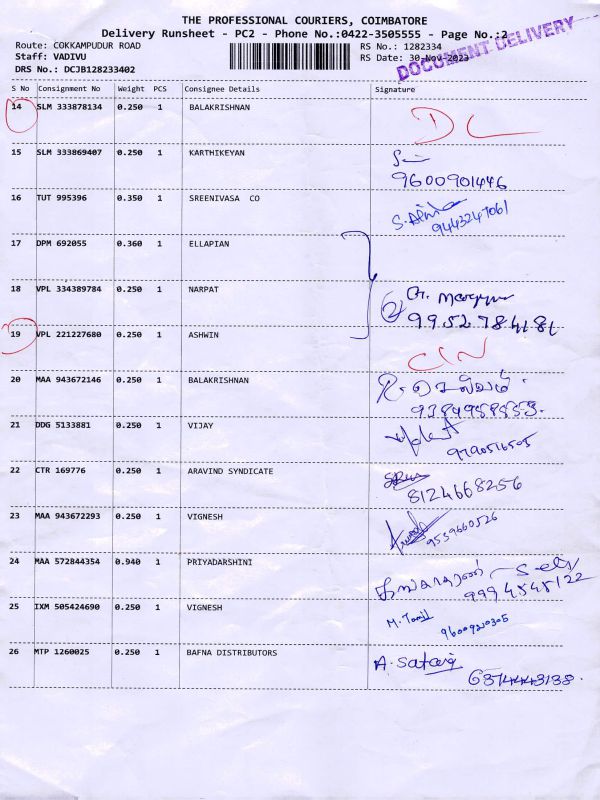 THE PROFESSIONAL COURIERS, COIMBATORE
Delivery Runsheet - PC2 - Phone No.:0422-3505555 - Page No.:2
Route: COKKAMPUDUR ROAD
RS No.: 1282334
Staff: VADIVU
RS Date: 30-Nov-2023
DOCUMENT DELIVERY
DRS No.: DCJB128233402
S No Consignment No Weight PCS Consignee Details Signature
14 SLM 333878134 0.250 1 BALAKRISHNAN DL
15 SLM 333869407 0.250 1 KARTHIKEYAN
9600901446
16 TUT 995396 0.350 1 SREENIVASA CO
9443247061
17 DPM 692055 0.360 1 ELLAPIAN
18 VPL 334389784 0.250 1 NARPAT
9952784181
19 VPL 221227680 0.250 1 ASHWIN
20 MAA 943672146 0.250 1 BALAKRISHNAN
21 DDG 5133881 0.250 1 VIJAY
9790516505
22 CTR 169776 0.250 1 ARAVIND SYNDICATE
8124668256
23 MAA 943672293 0.250 1 VIGNESH
9539660526
24 MAA 572844354 0.940 1 PRIYADARSHINI
9994545122
25 IXM 505424690 0.250 1 VIGNESH M. Tamil
9600920305
26 MTP 1260025 0.250 1 BAFNA DISTRIBUTORS